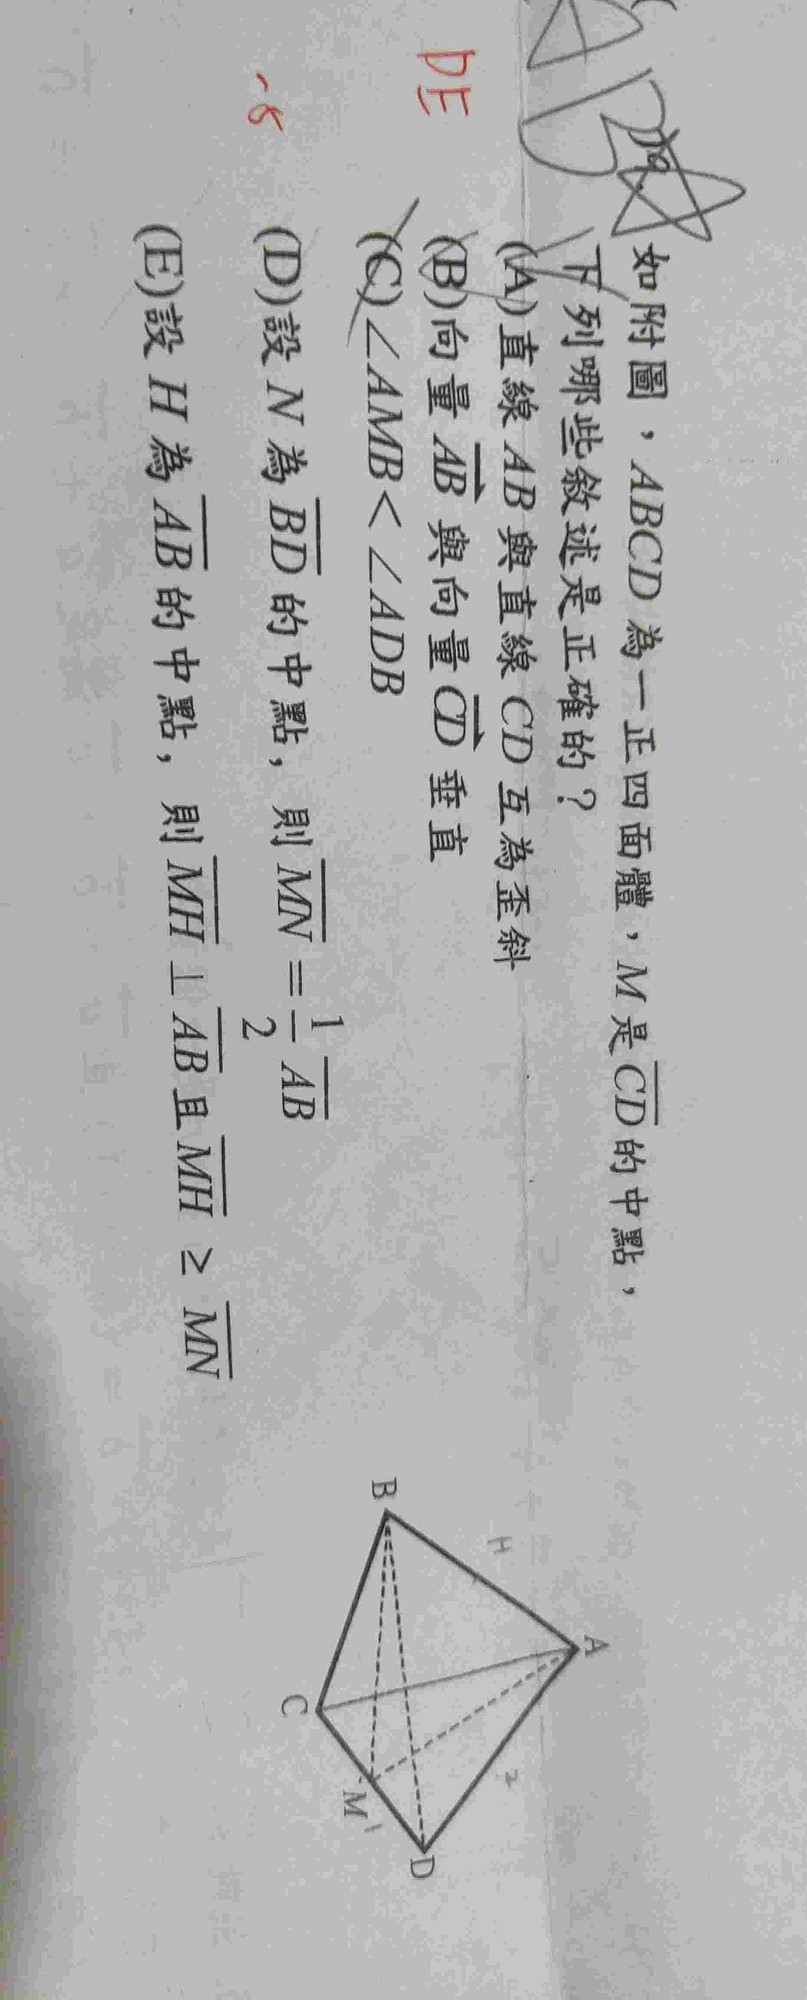 19.
如附圖，ABCD 為一正四面體，M 是 \overline{CD} 的中點，
下列哪些敘述是正確的？
(A)直線 AB 與直線 CD 互為歪斜
(B)向量 \overrightarrow{AB} 與向量 \overrightarrow{CD} 垂直
(C)∠AMB < ∠ADB
(D)設 N 為 \overline{BD} 的中點，則 \overline{MN} = \frac{1}{2} \overline{AB}
(E)設 H 為 \overline{AB} 的中點，則 \overline{MH} ⊥ \overline{AB} 且 \overline{MH} ≥ \overline{MN}
DE
-8
A
H
2
B
D
C
M
1